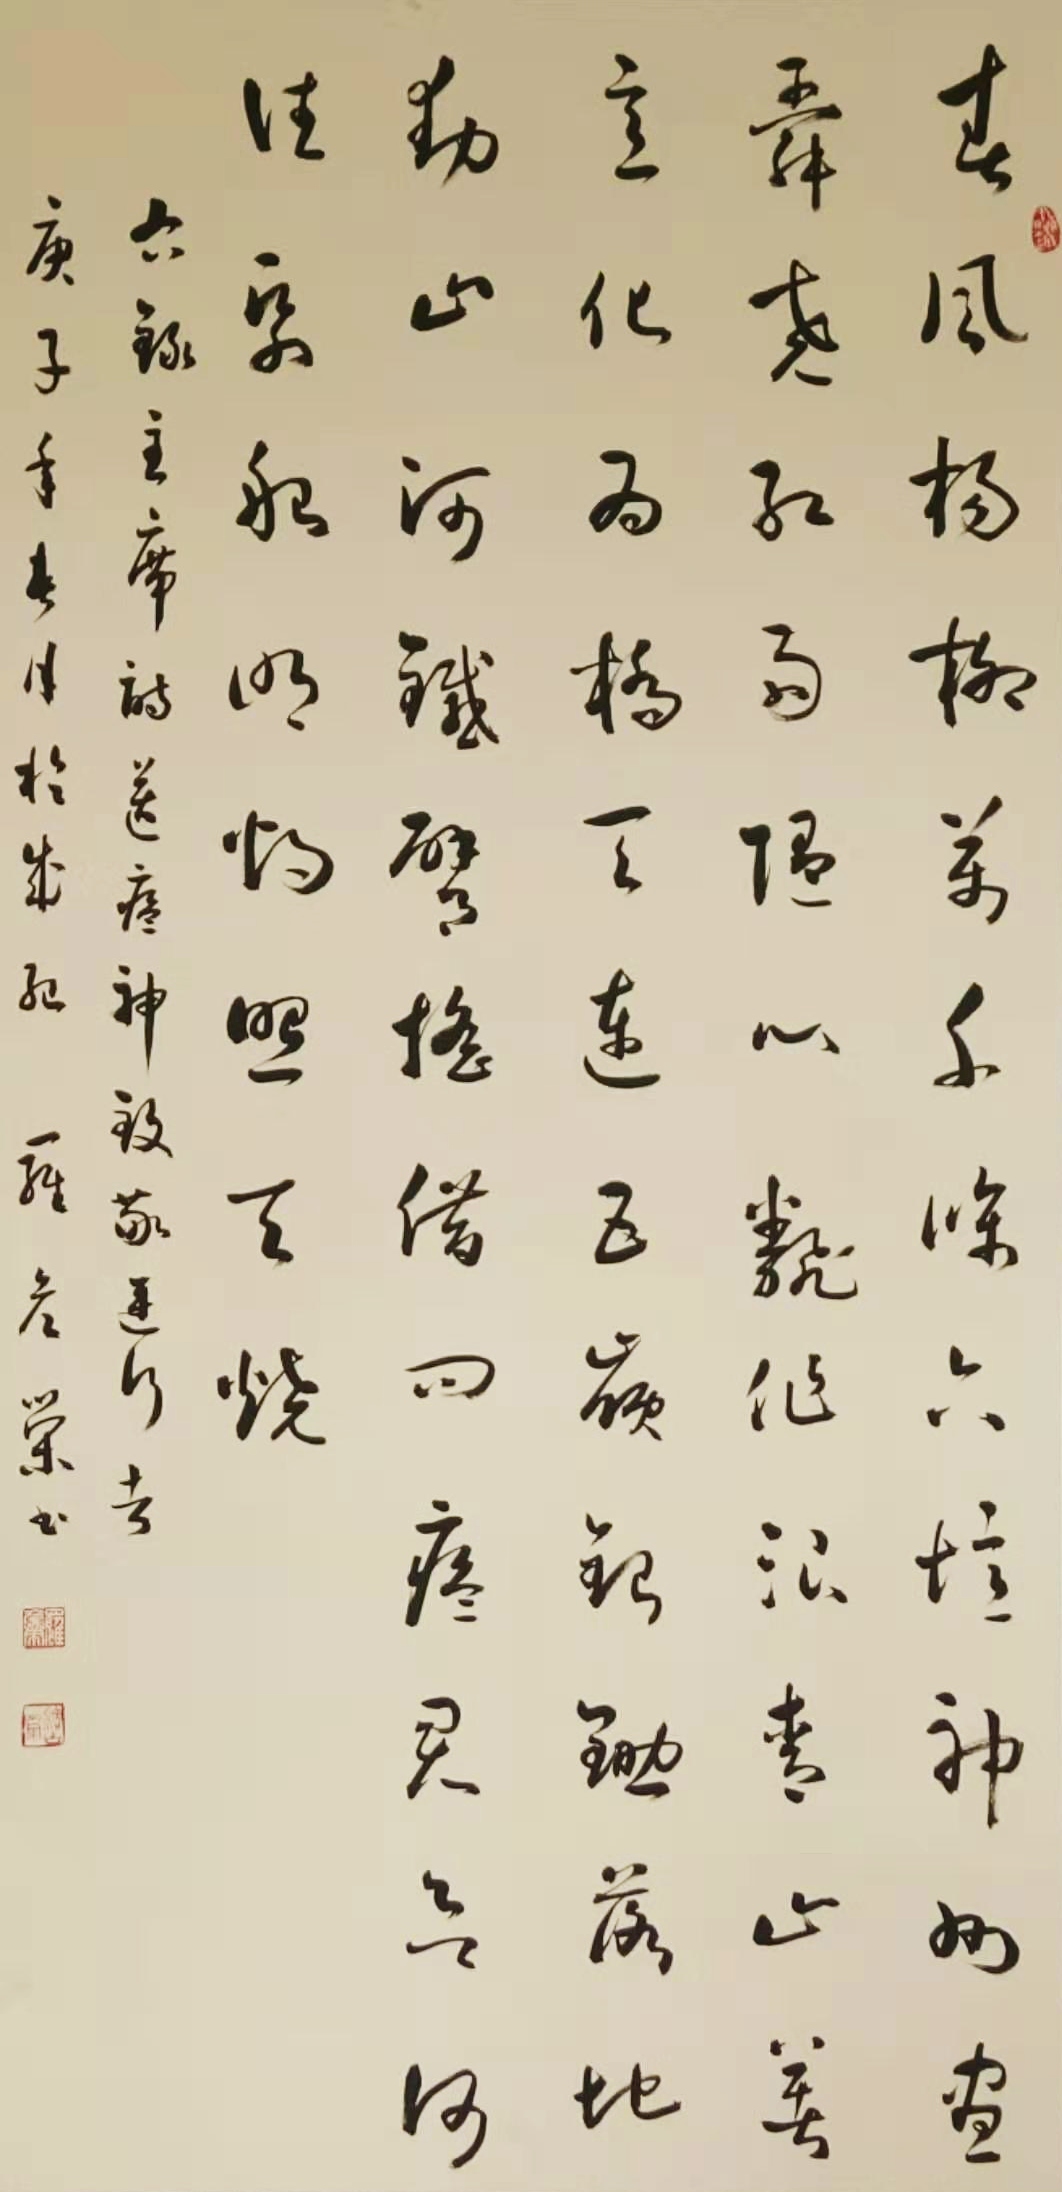 春風楊柳萬千條六億神州盡
舜堯紅雨隨心飜作浪青山著
意化為橋天連五嶺銀鋤落地
動山河鐵臂搖借問瘟君欲何
往紙船明燭照天燒
右錄主席詩送瘟神致敬逆行者
庚子年春月於成都 羅彥榮書